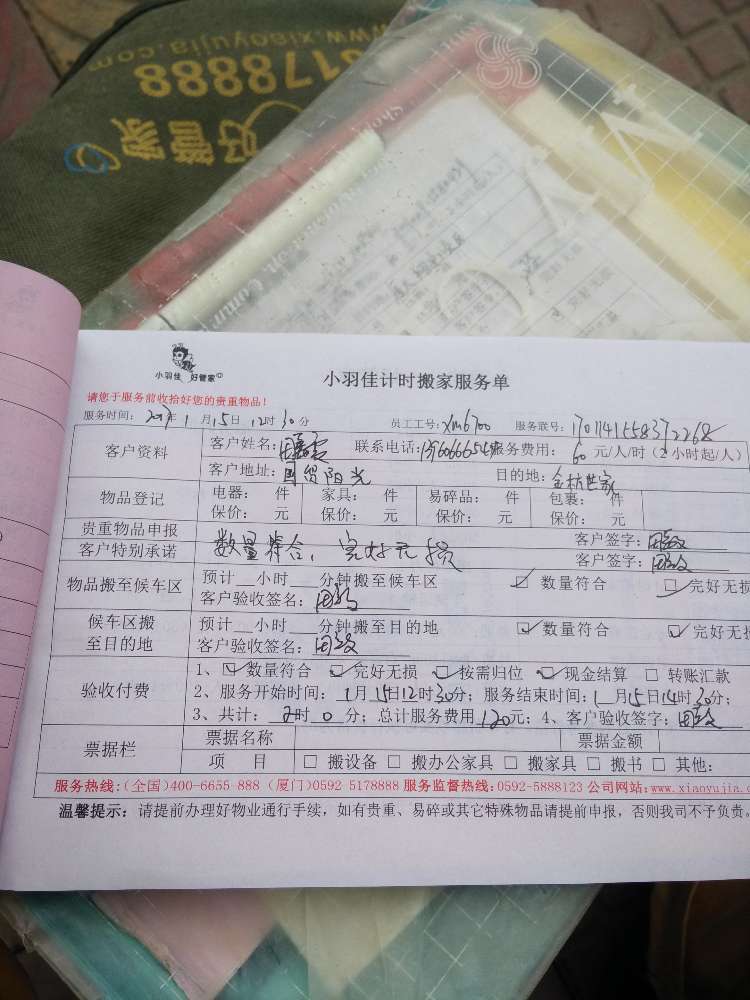 www.xiaoyujia.com
5178888
好管家
小羽佳 好管家
小羽佳计时搬家服务单
请您于服务前收拾好您的贵重物品！
服务时间：2017年1月15日12时30分 员工工号：xm6700 服务联号：
客户资料 客户姓名： 联系电话： 服务费用：60元/人/时（2小时起/人）
客户地址：国贸阳光 目的地：金桔世家
物品登记 电器： 件 家具： 件 易碎品： 件 包裹： 件
保价： 元 保价： 元 保价： 元 保价： 元
贵重物品申报 客户签字：
客户特别承诺 数量符合，完好无损 客户签字：
物品搬至候车区 预计__小时___分钟搬至候车区 ☑ 数量符合 ☑ 完好无损
客户验收签名：
候车区搬至目的地 预计__小时___分钟搬至目的地 ☑ 数量符合 ☑ 完好无损
客户验收签名：
验收付费 1、☑数量符合 ☑完好无损 ☑按需归位 ☑现金结算 □ 转账汇款
2、服务开始时间：1月15日12时30分；服务结束时间：1月15日14时30分；
3、共计：2时0分；总计服务费用120元；4、客户验收签字：
票据栏 票据名称 票据金额
项 目 □ 搬设备 □ 搬办公家具 □ 搬家具 □ 搬书 □ 其他：
服务热线：(全国)400-6655-888 (厦门)0592 5178888 服务监督热线：0592-5888123 公司网站：www.xiaoyujia.c
温馨提示：请提前办理好物业通行手续，如有贵重、易碎或其它特殊物品请提前申报，否则我司不予负责。